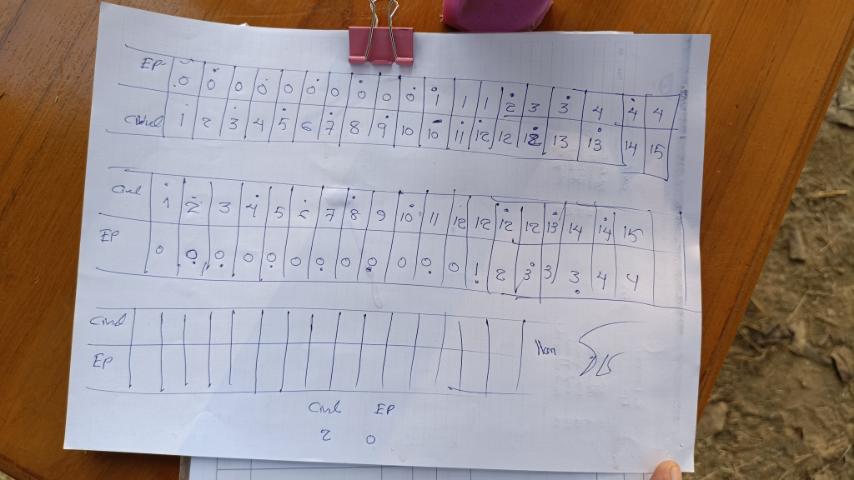 EP 0 0 0 0 0 0 0 0 0 0 1 1 1 2 3 3 4 4 4
Cmd 1 2 3 4 5 6 7 8 9 10 10 11 12 12 12 13 13 14 15
Cmd 1 2 3 4 5 6 7 8 9 10 11 12 12 12 12 13 14 14 15
EP 0 0 0 0 0 0 0 0 0 0 0 0 1 2 3 3 3 4 4
Cmd
EP
Cmd EP
2 0